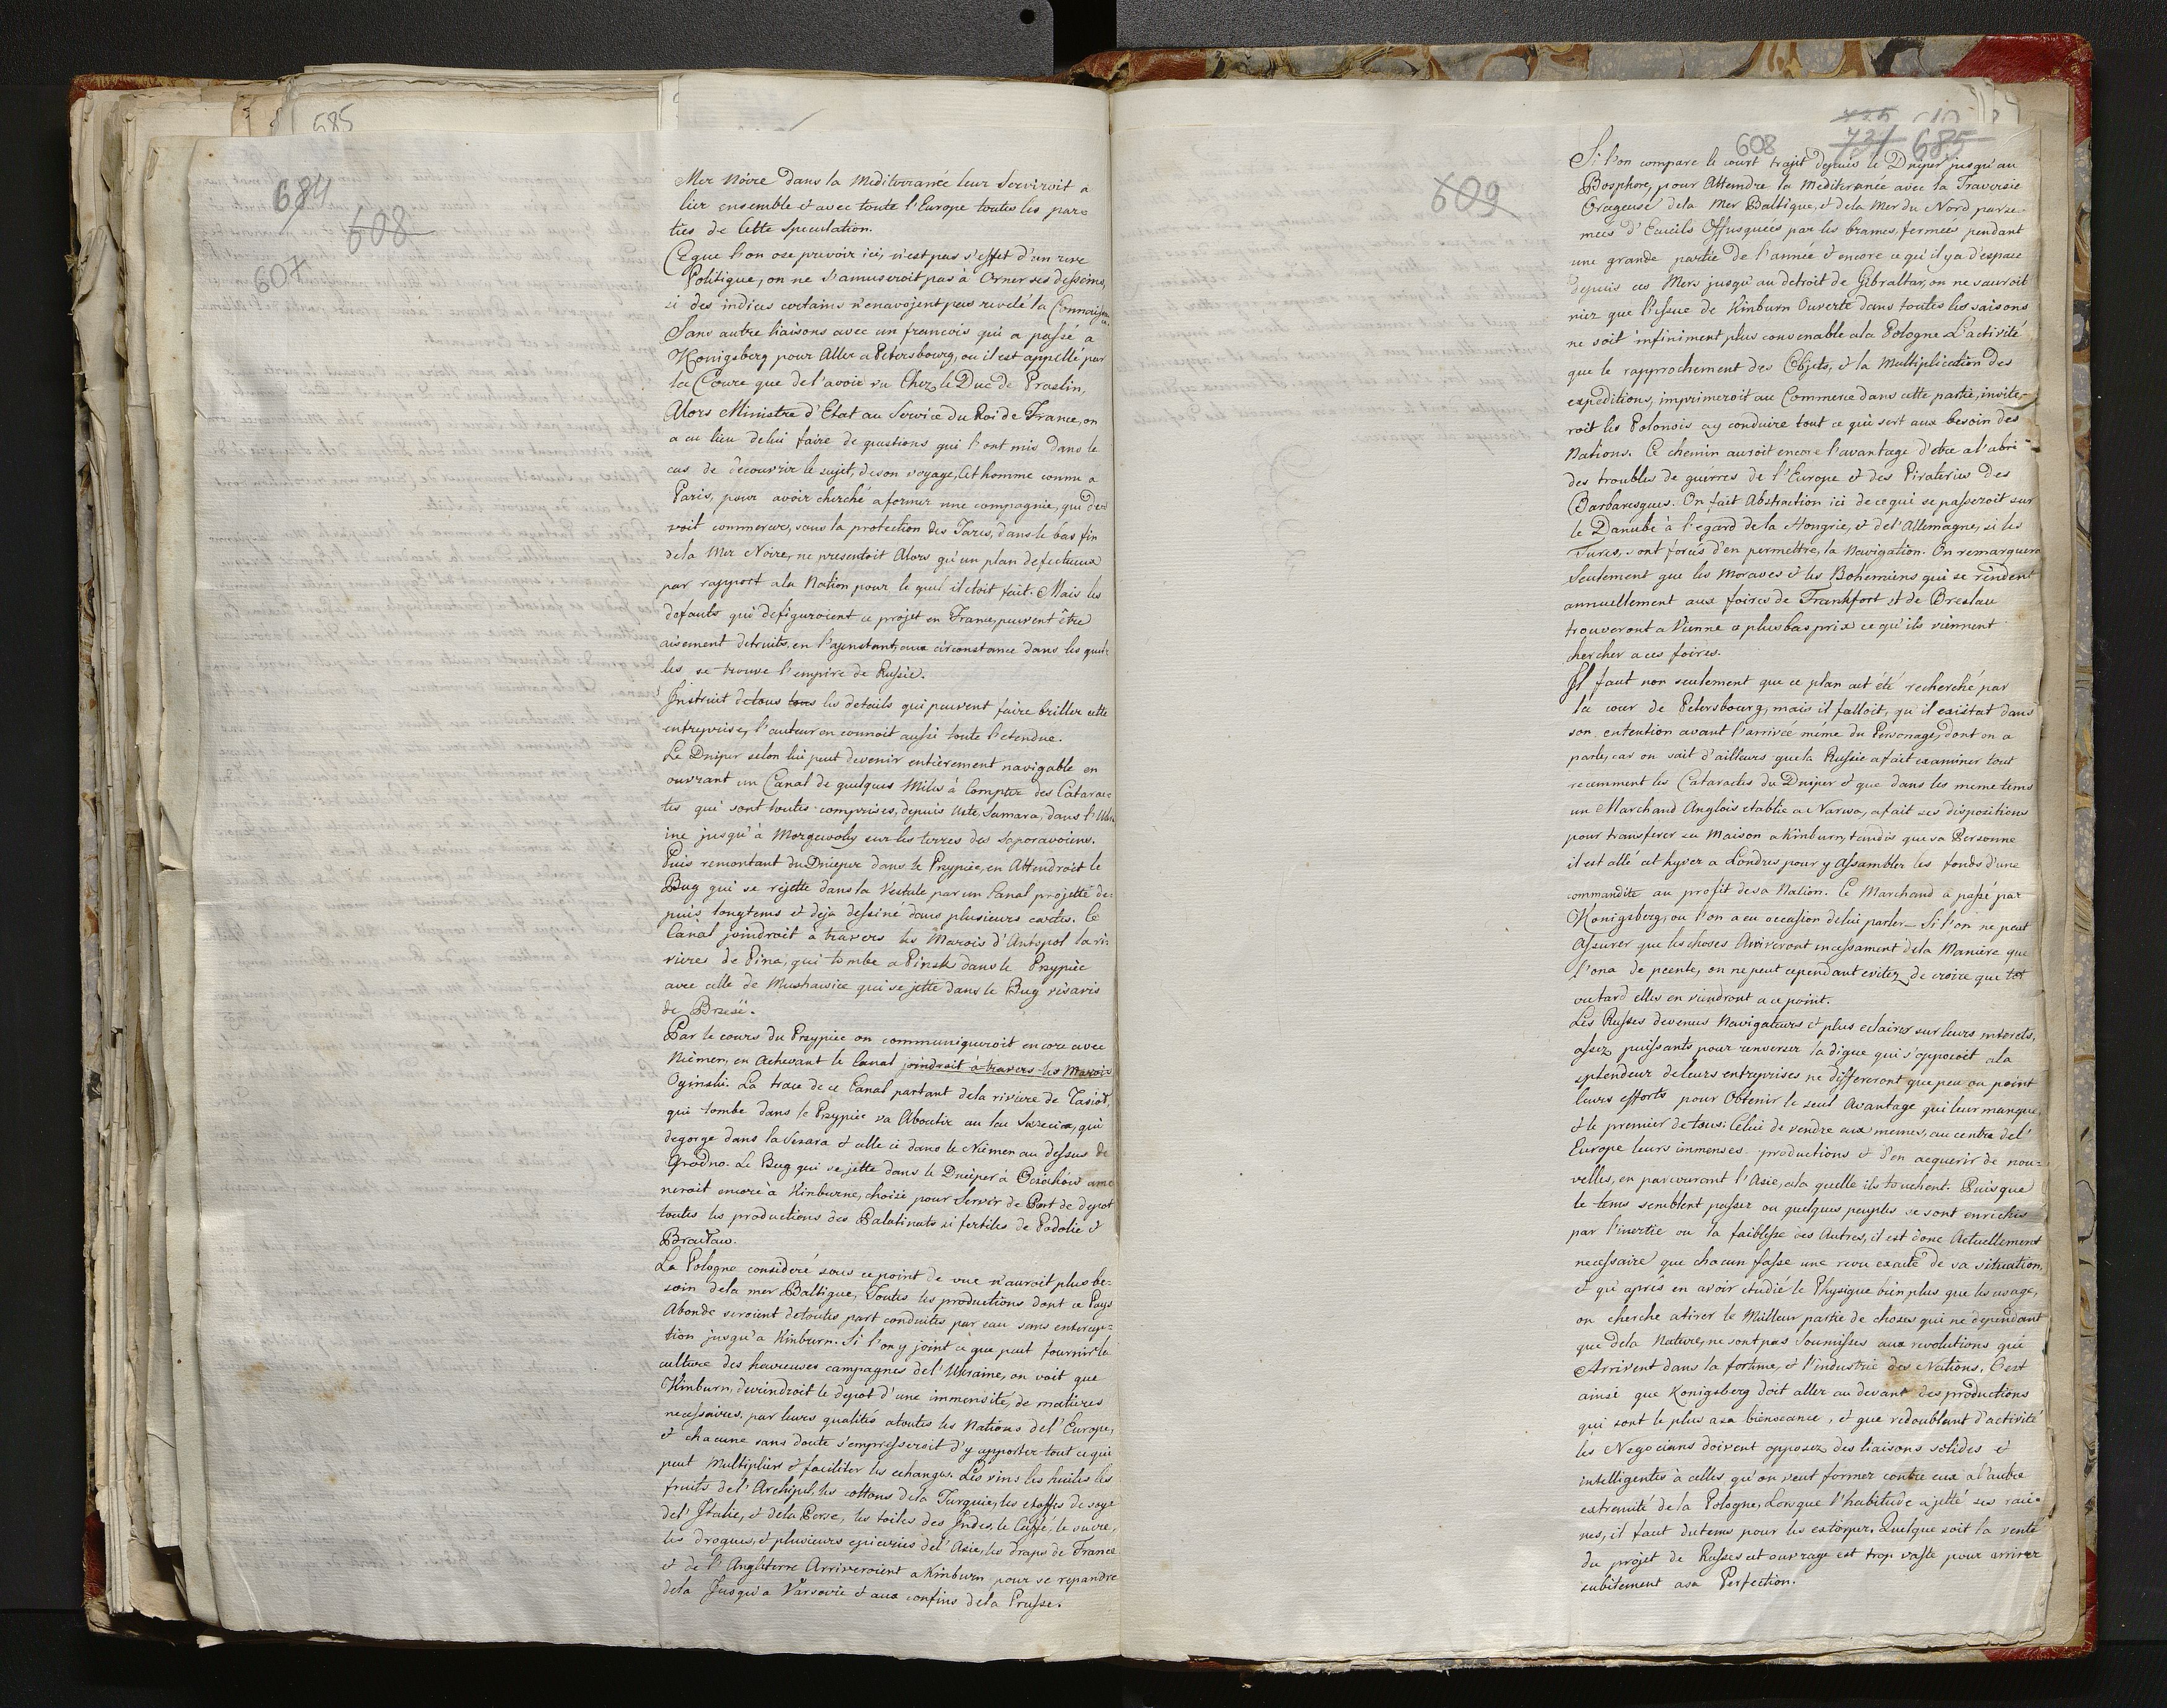 585
684
608
607
Mer Noire dans la Mediterranée leur Serviroit a
lier ensemble & avec toute l'Europe toutes les par=
ties de Cette Speculation.
Ce que l'on ose prevoir ici, n'est pas l'effet d'un reve
Politique, on ne s'amuseroit pas à Orner ses desseins,
si des indices certains n'en avojent pas revelé la Connaiss
Sans autre liaisons avec un francois qui a passé a
Konigsberg pour Aller a Petersbourg, ou il est appellé par
la Coure que de l'avoir vu Chez le Duc de Praslin,
Alors Ministre d'Etat au Service du Roi de France, on
a eu lieu de lui faire de questions qui l'ont mis dans le
cas de decouvrir le sujet, de son voyage, Cet homme connu a
Paris, pour avoir cherché a former une compagnie, qui de
voit commercer, sous la protection des Turcs, dans le bas fin
de la Mer Noire, ne presentoit Alors qu'un plan defectueux
par rapport a la Nation pour le quel il etoit fait. Mais les
defauts qui defiguroient ce projet en France, peuvent être
aisement detruits, en l'ajoustant, aux circonstance dans les quel
les se trouve l'empire de Russie.
Instruit de tous tous les details qui peuvent faire briller cette
entreprise, l'auteur en connoit aussi toute l'etendue.
Le Dniper selon lui peut devenir entièrement navigable en
ouvrant un Canal de quelques Miles à Compter des Catarac
tes qui sont toutes comprises, depuis Uste, Samara, dans l'Ukra
ine jusqu'à Morgewoly sur les terres des Saporavoiens.
Puis remontant du Dnieper dans le Przypiec, en Attendroit le
Bug qui se rejette dans la Vestule par un Canal projetté de=
puis longtems et deja dessiné dans plusieurs cartes. Ce
Canal joindroit à travers les Marois d'Antopol la ri
vieres de Pina, qui tombe a Pinsk dans le Przypiec
avec celle de Mushawice qui se jette dans le Bug visavis
de Brzesc.
Par le cours du Przypiec on communiqueroit encore avec
Niemen, en Achevant le Canal joindroit à travers les Marois
Oginski. La trace de ce Canal partant de la riviere de Jasiod,
qui tombe dans le Przypiec va Aboutir au lac Swecica, qui
degorge dans la Sczara & celle ci dans le Niemen au dessus de
Grodno. Le Bug qui se jette dans le Dnieper à Oczakow ame
neroit encore à Kinburne, choisi pour Servir de Port de depot
toutes les productions des Palatinats si fertiles de Podolie &
Braclaw.
La Pologne consideré sous ce point de vue n'auroit plus be=
soin de la mer Baltique, Toutes les productions dont ce Pays
Abonde seroient de toutes part conduites par eau sans enterrup=
tion jusqu'a Kinburn. Si l'on y joint ce que peut fournir la
culture des heureuses campagnes de l'Ukraine, on voit que
Kinburn, deviendroit le depot d'une immensité, de matieres
necessaires, par leurs qualités a toutes les Nations de l'Europe,
& chacune sans doute s'empresseroit d'y apporter tout ce qui
peut Multipliers & faciliter les echanges. Les vins les huiles les
fruits de l'Archipel, les cottons de la Turquie, les etoffes de soye
de l'Italie, & de la Perse, les toiles des Indes, le Caffé, le sucre,
les drogues, & plusieurs epiceries de l'Asie, les draps de France
& de l'Angleterre Arriveroient a Kinburn pour se repandre
dela Jusqu'a Varsovie & aux confins de la Prusse.
609
608
721 685
Si l'on compare le court trajet depuis le Dniper jusqu'au
Bosphore, pour Attendre la Mediterranée avec la Traversie
Orageuse de la Mer Baltique, & de la Mer du Nord parse=
meés d'Ecueils Offusqueés par les brumes, fermees pendant
une grande partie de l'année & encore ce qu'il y a d'espace
depuis ces Mers jusqu'au detroit de Gibraltar, on ne sauroit
nier que l'issue de Kinburn Ouverte dans toutes les saisons
ne soit infiniment plus convenable a la Pologne L'activité
que le rapprochement des Objets, & la Multiplication des
expeditions, imprimeroit au Commerce dans cette partie, invite=
roit les Polonois a y conduire tout ce qui sert aux besoin des
Nations. Ce chemin auroit encore l'avantage d'etre a l'abri
des troubles de guérres de l'Europe & des Pirateries des
Barbaresques. On fait Abstraction ici de ce qui se passeroit sur
le Danube à l'egard de la Hongrie, & de l'Allemagne, si les
Turcs, sont forcés d'en permettre, la Navigation. On remarquera
Seulement que les Moraves & les Bohemiens qui se rendent
annuellement aux foires de Frankfort et de Breslau
trouveront a Vienne a plus bas prix ce qu'ils viennent
chercher a ces foires.
Il faut non seulement que ce plan ait été recherché par
la cour de Petersbourg, mais il falloit, qu'il existat dans
son entention avant l'arrivée meme du Personage, dont on a
parle, car on sait d'ailleurs que la Russie a fait examiner tout
recemment les Cataractes du Dniper & que dans les meme tems
un Marchand Anglois etablie a Narva, a fait ses dispositions
pour transferer sa Maison a Kinburn, tandis que sa Personne
il est allé cet hyver a Londres pour y Assambler les fonds d'une
commandite au profit de sa Nation. Ce Marchand a passé par
Konigsberg, ou l'on a eu occasion de lui parler_ Si l'on ne peut
Assurer que les choses Arriveront incessament de la Manière que
l'on a de peente, on ne peut cependant eviter, de croire que tôt
ou tard elles en viendront a ce point.
Les Russes devenus Navigateurs & plus eclairés sur leurs interets,
assez puissants pour renverser la digue qui s'opposoit a la
splendeur de leurs entreprises ne differeront que peu ou point
leurs efforts pour Obtenir le seul Avantage qui leur manque,
& le premier de tous: Celui de vendre eux memes, au centre de l'
Europe leurs immenses productions & d'en acquerir de nou=
velles, en parcourant l'Asie, a la quelle ils touchent. Puisque
le tems semblent passez ou quelques peuples se sont enrichis
par l'inertie ou la faiblesse des Autres, il est donc Actuellement
necessaire que chacun fasse une revu exacte de sa situation,
& qu'après en avoir etudié le Physique bien plus que les usage,
on cherche a tirer le Milleur partie de choses qui ne dependant
que de la Nature, ne sont pas Soumises aux revolutions qui
Arrivent dans la fortune, & l'industrie des Nations. C'est
ainsi que Konigsberg doit aller au devant des productions
qui sont le plus a sa bienseance, & que redoublant d'activité
les Negocians doivent opposez des liaisons solides &
intelligentes à celles qu'on veut former contre eux a l'autre
extremité de la Pologne, Lorsque l'habitude a jetté ses raci=
nes, il faut du tems pour les extirper. Quelque soit la verité
du projet de Russes cet ouvrage est trop vaste pour arriver
subitement a sa Perfection.